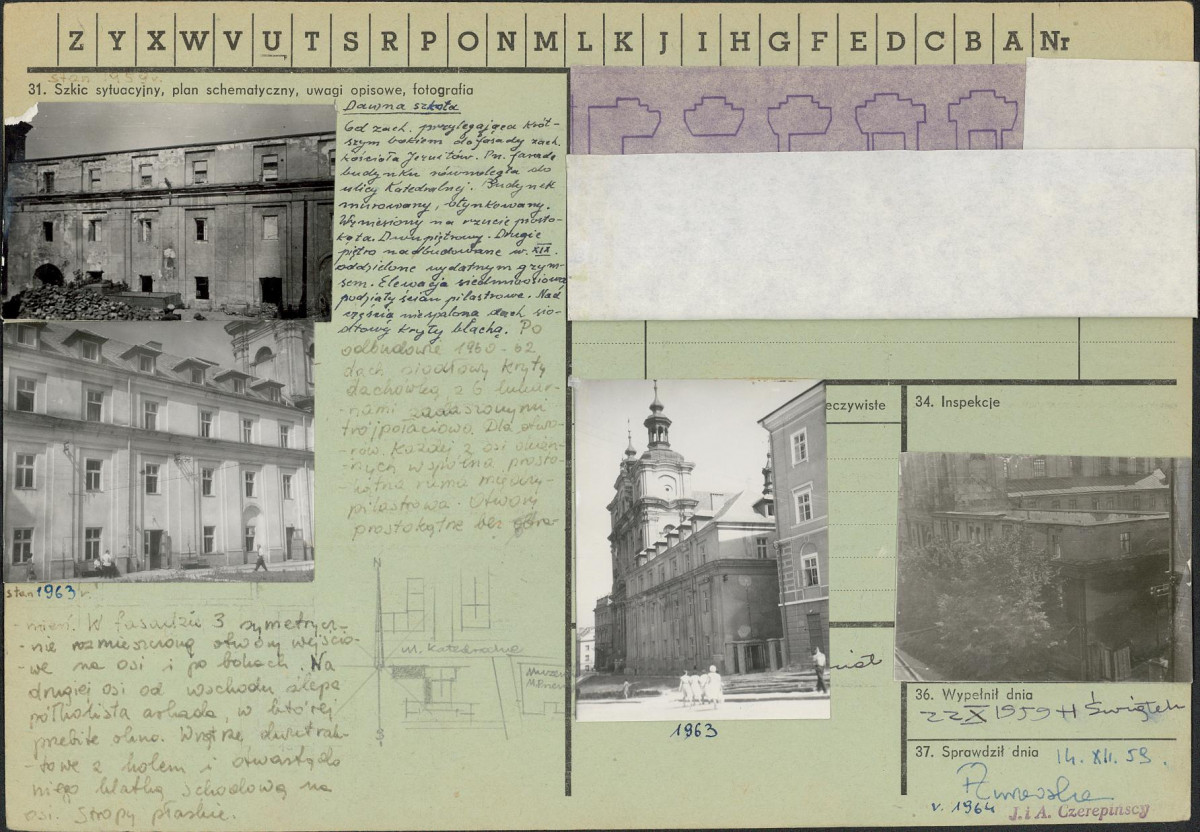 Z Y X W V U T S R P O N M L K J I H G F E D C B A Nr
stan 1959 r.
31. Szkic sytuacyjny, plan schematyczny, uwagi opisowe, fotografia
Dawna szkoła
Od zach. przylegająca krót-
szym bokiem do fasady zach.
kościoła Jezuitów. Pn. fasada
budynku równoległa do
ulicy Katedralnej. Budynek
murowany, otynkowany.
Wzniesiony na rzucie prosto-
kąta. Dwupiętrowy. Drugie
piętro nadbudowane w. XIX.
oddzielone wydatnym gzym-
sem. Elewacja siedmioosiowa
podziały ścian pilastrowe. Nad
częścią niespaloną dach sio-
dłowy kryty blachą. Po
odbudowie 1960-62
dach siodłowy kryty
dachówką, z 6 lukar-
-nami zadaszonymi
trójpołaciowo. Dla otwo-
-rów każdej z osi okien-
-nych wspólna prosto-
-kątna rama między-
pilastrowa. Otwory
prostokątne bez obra-
stan 1963 r.
-mień. W fasadzie 3 symetrycz-
-nie rozmieszczone otwory wejścio-
-we na osi i po bokach. Na
drugiej osi od wschodu ślepa
półkolista arkada, w której
przebite okno. Wnętrze dwutrak-
-towe z holem i otwartą do
niego klatką schodową na
osi. Stropy płaskie.
ul. Katedralna
1963
eczywiste
34. Inspekcje
36. Wypełnił dnia
22 X 1959 H Świątek
37. Sprawdził dnia
14. XII. 59.
v. 1964
J. i A. Czerepińscy